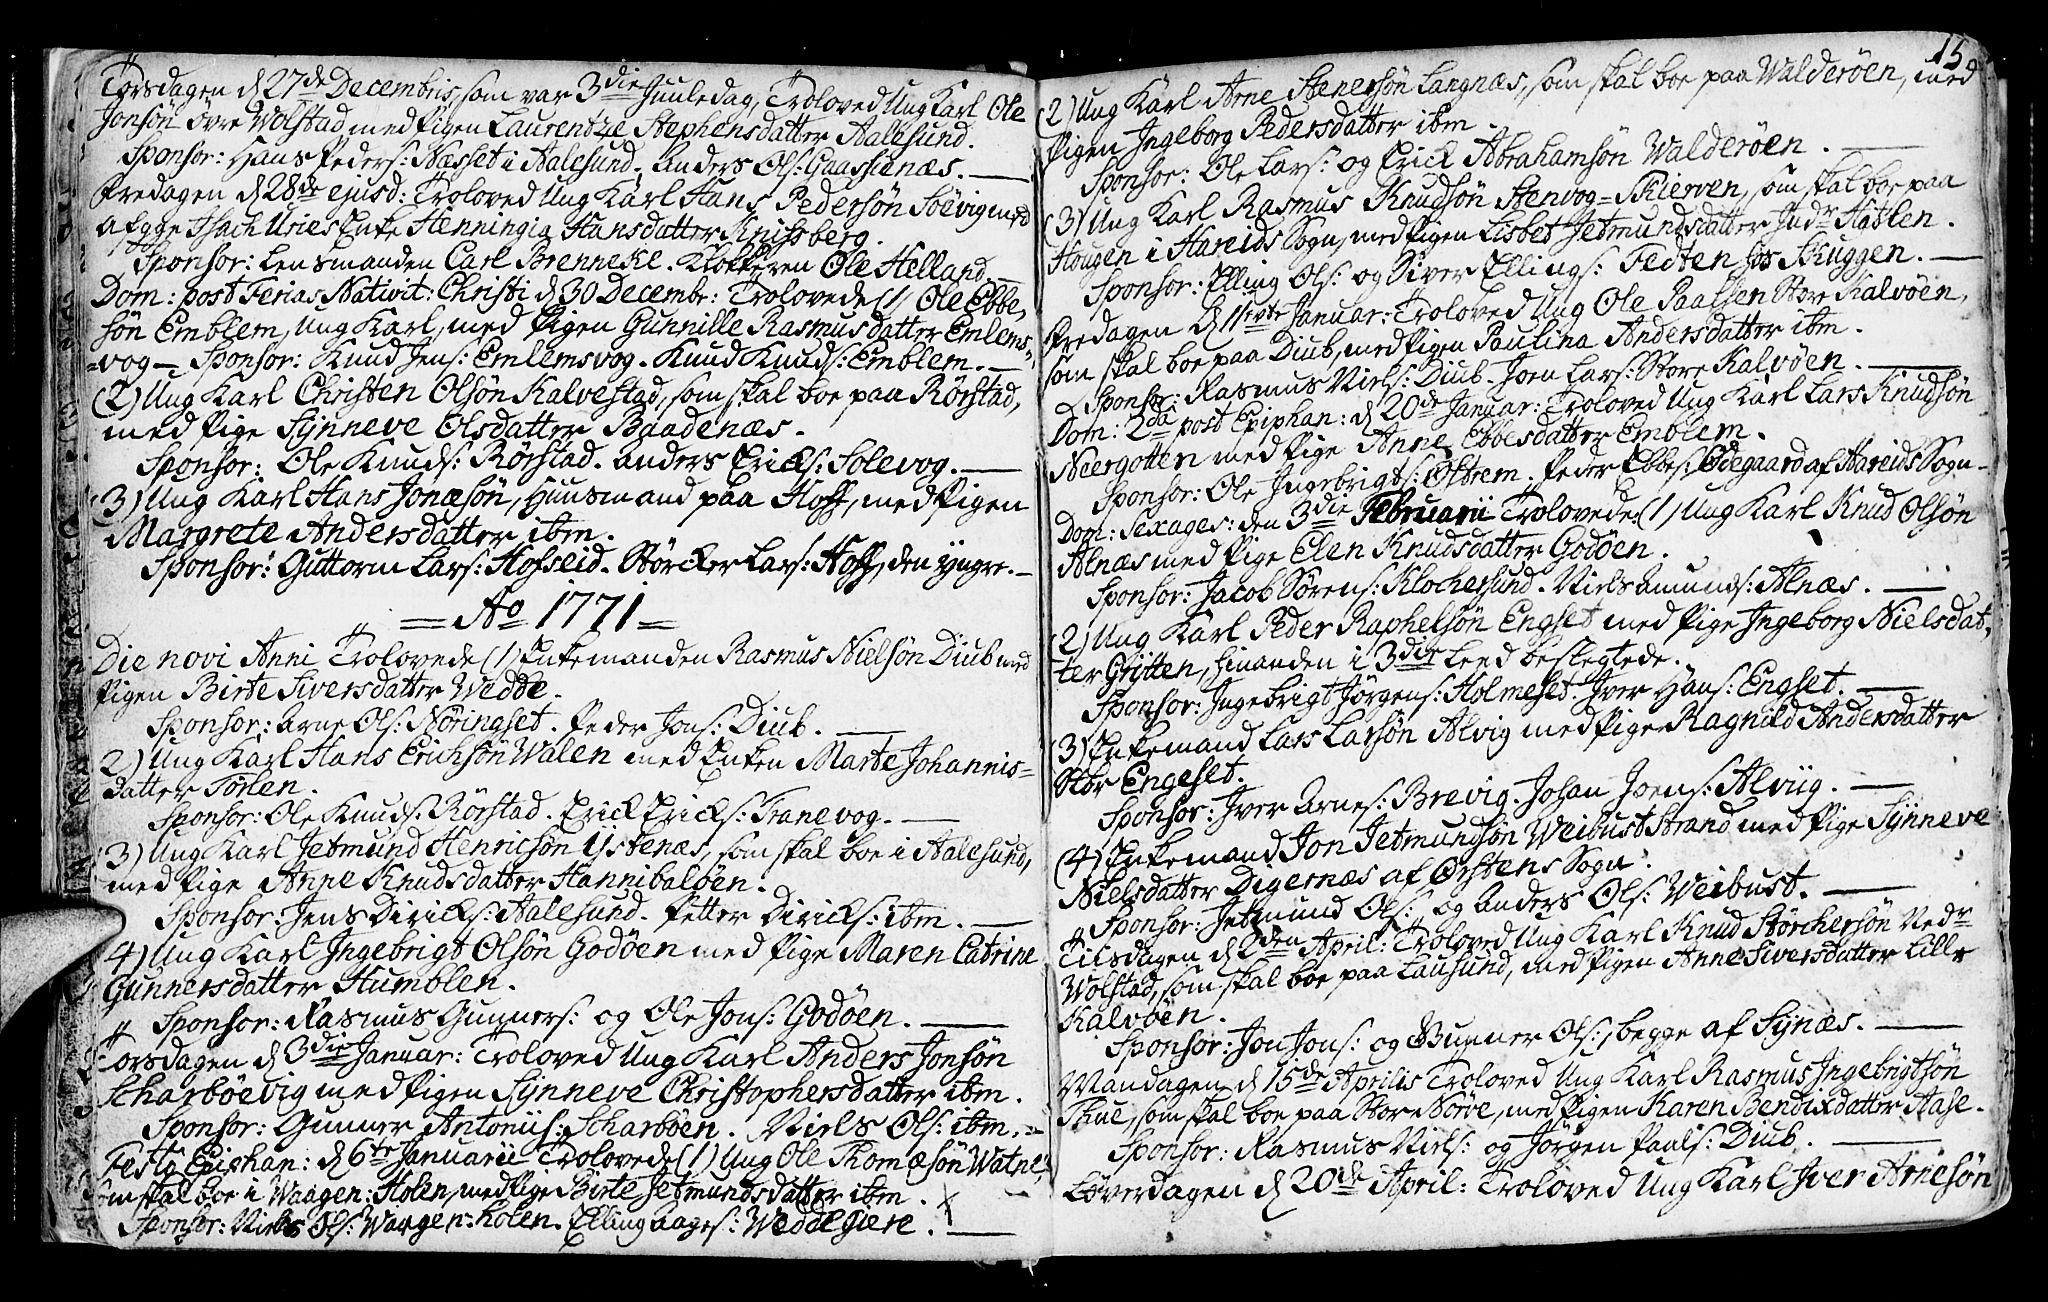 Torsdagen d 27de Decembris, som var 3die Juuledag, Troloved Ung Karl Ole
Jonsön övre Wolstad med Pigen Laurentze Stephensdatter Aalesund.
Sponsor: Hans Peders: Næsset i Aalesund. Anders Ols: Gaassenæs.
Fredagen d 28de ejusd: Troloved Ung Karl Hans Pedersön Söevig med
afgge Isach Uries Enke Henningia Hansdatter Knissberg.
Sponsor: Lensmanden Carl Brennekl. Klokkeren Ole Helland.
Dom: post Ferias Nativit: Christi d 30 Decembr: Trolovede (1) Ole Ebbe,
sön Emblem, Ung Karl, med Pigen Gunnille Rasmusdatter Emlems-
=vog - Sponsor: Knud Jens: Emlemsvog. Knud Knuds: Emblem.
(2) Ung Karl Christen Olsön Kalvestad, som skal boe paa Rörstad,
med Pige Synneve Olsdatter Baadenæs.
Sponsor: Ole Knuds: Rörstad. Anders Ericks: Solevog.
3) Ung Karl Hans Jonæsön, Huusmand paa Hoff, med Pigen
Margrete Andersdatter ibm.
Sponsor: Guttorm Lars: Hofseid. Störcker Lars: Hoff, den yngre.
= Ao 1771 =
Die novi Anni Trolovede (1) Enkemanden Rasmus Nielsön Diub med
Pigen Birte Siversdatter Wedde.
Sponsor: Arne Ols: Nöringset. Peder Jons: Diub.
2) Ung Karl Hans Erichsön Walen med Enken Marte Johannis=
datter Törlen.
Sponsor: Ole Knuds: Rörstad. Erick Ericks: Tranevog.
3) Ung Karl Jetmund Henricsön Ystenæs, som skal boe i Aalesund,
med Pige Anne Knudsdatter Hannibalöen.
Sponsor: Jens Diricks: Aalesund. Petter Diricks: ibm.
4) Ung Karl Ingebrigt Olsön Godöen med Pige Maren Catrine
Gunnersdatter Humblen.
Sponsor: Rasmus Gunners: og Ole Jons: Godöen.
Torsdagen d 3die Januar: Troloved Ung Karl Anders Jonsön
Scharböevig med Pigen Synneve Christophersdatter ibm.
Sponsor: Gunner Antonii: Scharböen. Niels Ols: ibm.
Festo Epiphan: d 6te Januarii Trolovede (1) Ung Ole Thomæsön Watne,
som skal boe i Waagen: Holen, med Pige Birte Jetmundsdatter ibm.
Sponsor: Niels Ols: Waagen-Holen. Elling Aages: Weddegiere.
15
(2) Ung Karl Arne Stenersön Langnæs, som skal boe paa Walderöen, med
Pigen Ingeborg Pedersdatter ibm.
Sponsor: Ole Lars: og Erick Abrahamsön Walderöen.
(3) Ung Karl Rasmus Knudsön Stenvog=Skierven, som skal boe paa
Hougen i Hareids Sogn, med Pigen Lisbet Jetmundsdatter Indr Hatlen.
Sponsor: Elling Ols: og Siver Ellings: Tedten hos Skuggen.
Fredagen d 11ivte Januar: Troloved Ung Ole Paalsen Store Kalvöen,
som skal boe paa Diub, med Pigen Paulina Andersdatter ibm.
Sponsor: Rasmus Niels: Diub. Joen Lars: Store Kalvöen.
Dom: 2da post Epiphan: d 20de Januar: Troloved Ung Karl Lars Knudsön
Neergotten med Pige Anne Ebbesdatter Emblem.
Sponsor: Ole Ingebrigts: Östrem. Peder Ebbes: Ödegaard af Hareids Sogn.
Dom: Sexages: den 3die Februarii Trolovede: (1) Ung Karl Knud Olsön
Alnæs med Pige Elen Knudsdatter Godöen.
Sponsor: Jacob Sörens: Klochersund. Niels Amunds: Alnæs.
(2) Ung Karl Peder Raphelsön Engset med Pige Ingeborg Nielsdat,
ter Gritten, hinanden i 3die Leed beslegtede.
Sponsor: Ingebrigt Jörgens: Holmeset. Iver Hans: Engset.
(3) Enkemand Lars Larsön Alvig med Pige Ragnild Andersdatter
Stor Engeset.
Sponsor: Iver Arnes: Brevig. Johan Joens: Alviig.
(4) Enkemand Jon Jetmundsön Weibust Strand med Pige Synneve
Nielsdatter Digernæs af Örstens Sogn.
Sponsor: Jetmund Ols: og Anders Ols: Weibust.
Tilsdagen d 2den April: Troloved Ung Karl Knud Störchersön Nedr
Wolstad, som skal boe paa Lausund, med Pigen Anne Siversdatter Lille
Kalvöen.
Sponsor: Jon Jons: og Gunner Ols: begge af Synæs.
Mandagen d 15de Aprilis Troloved Ung Karl Rasmus Ingebrigtsön
Thue, som skal boe paa Store Nörve, med Pigen Karen Bendixdatter Aase.
Sponsor: Rasmus Niels: og Jörgen Paals: Diub.
Löverdagen d 20de April: Troloved Ung Karl Iver Arnesön